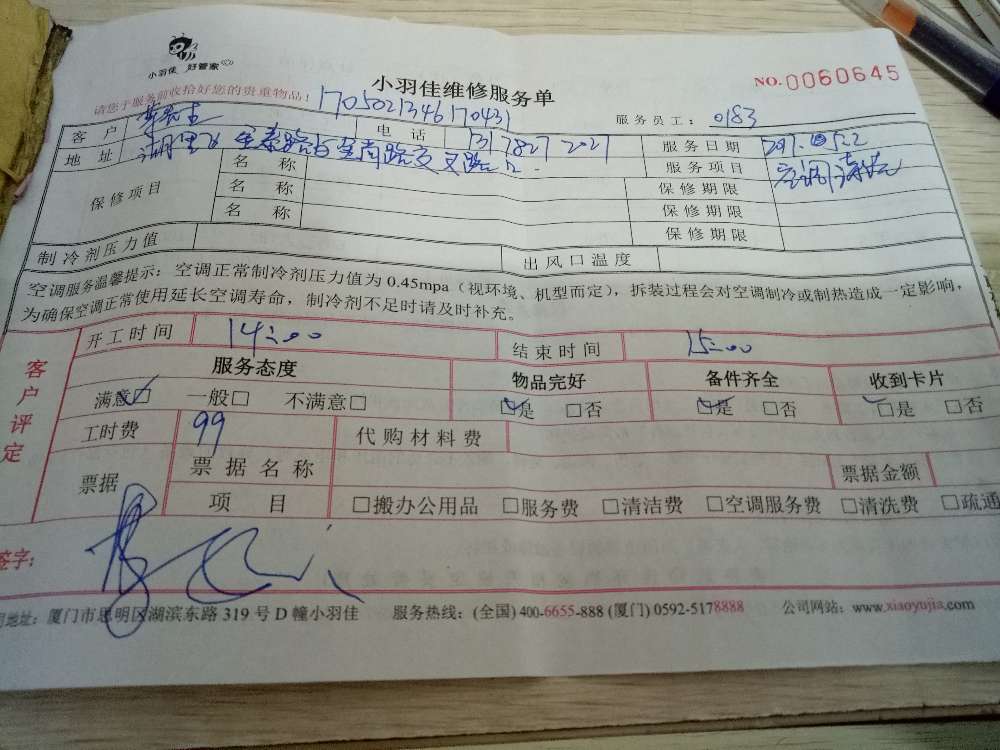 小羽佳 好管家
小羽佳维修服务单
NO.0060645
请您于服务前收拾好您的贵重物品！
1705021346170431
服务员工： 0183
客户
电话 13178272021
服务日期
地址
服务项目 空调清洗
保修项目
名称
保修期限
名称
保修期限
名称
保修期限
制冷剂压力值
出风口温度
空调服务温馨提示：空调正常制冷剂压力值为 0.45mpa（视环境、机型而定），拆装过程会对空调制冷或制热造成一定影响，
为确保空调正常使用延长空调寿命，制冷剂不足时请及时补充。
客户评定
开工时间 14:00
结束时间 15:00
服务态度
物品完好
备件齐全
收到卡片
满意□ 一般□ 不满意□
□是 □否
□是 □否
□是 □否
工时费 99
代购材料费
票据
票据名称
票据金额
项目 □搬办公用品 □服务费 □清洁费 □空调服务费 □清洗费 □疏通
签字：
地址：厦门市思明区湖滨东路 319 号 D 幢小羽佳 服务热线：(全国) 400-6655-888 (厦门) 0592-5178888 公司网站：www.xiaoyujia.com